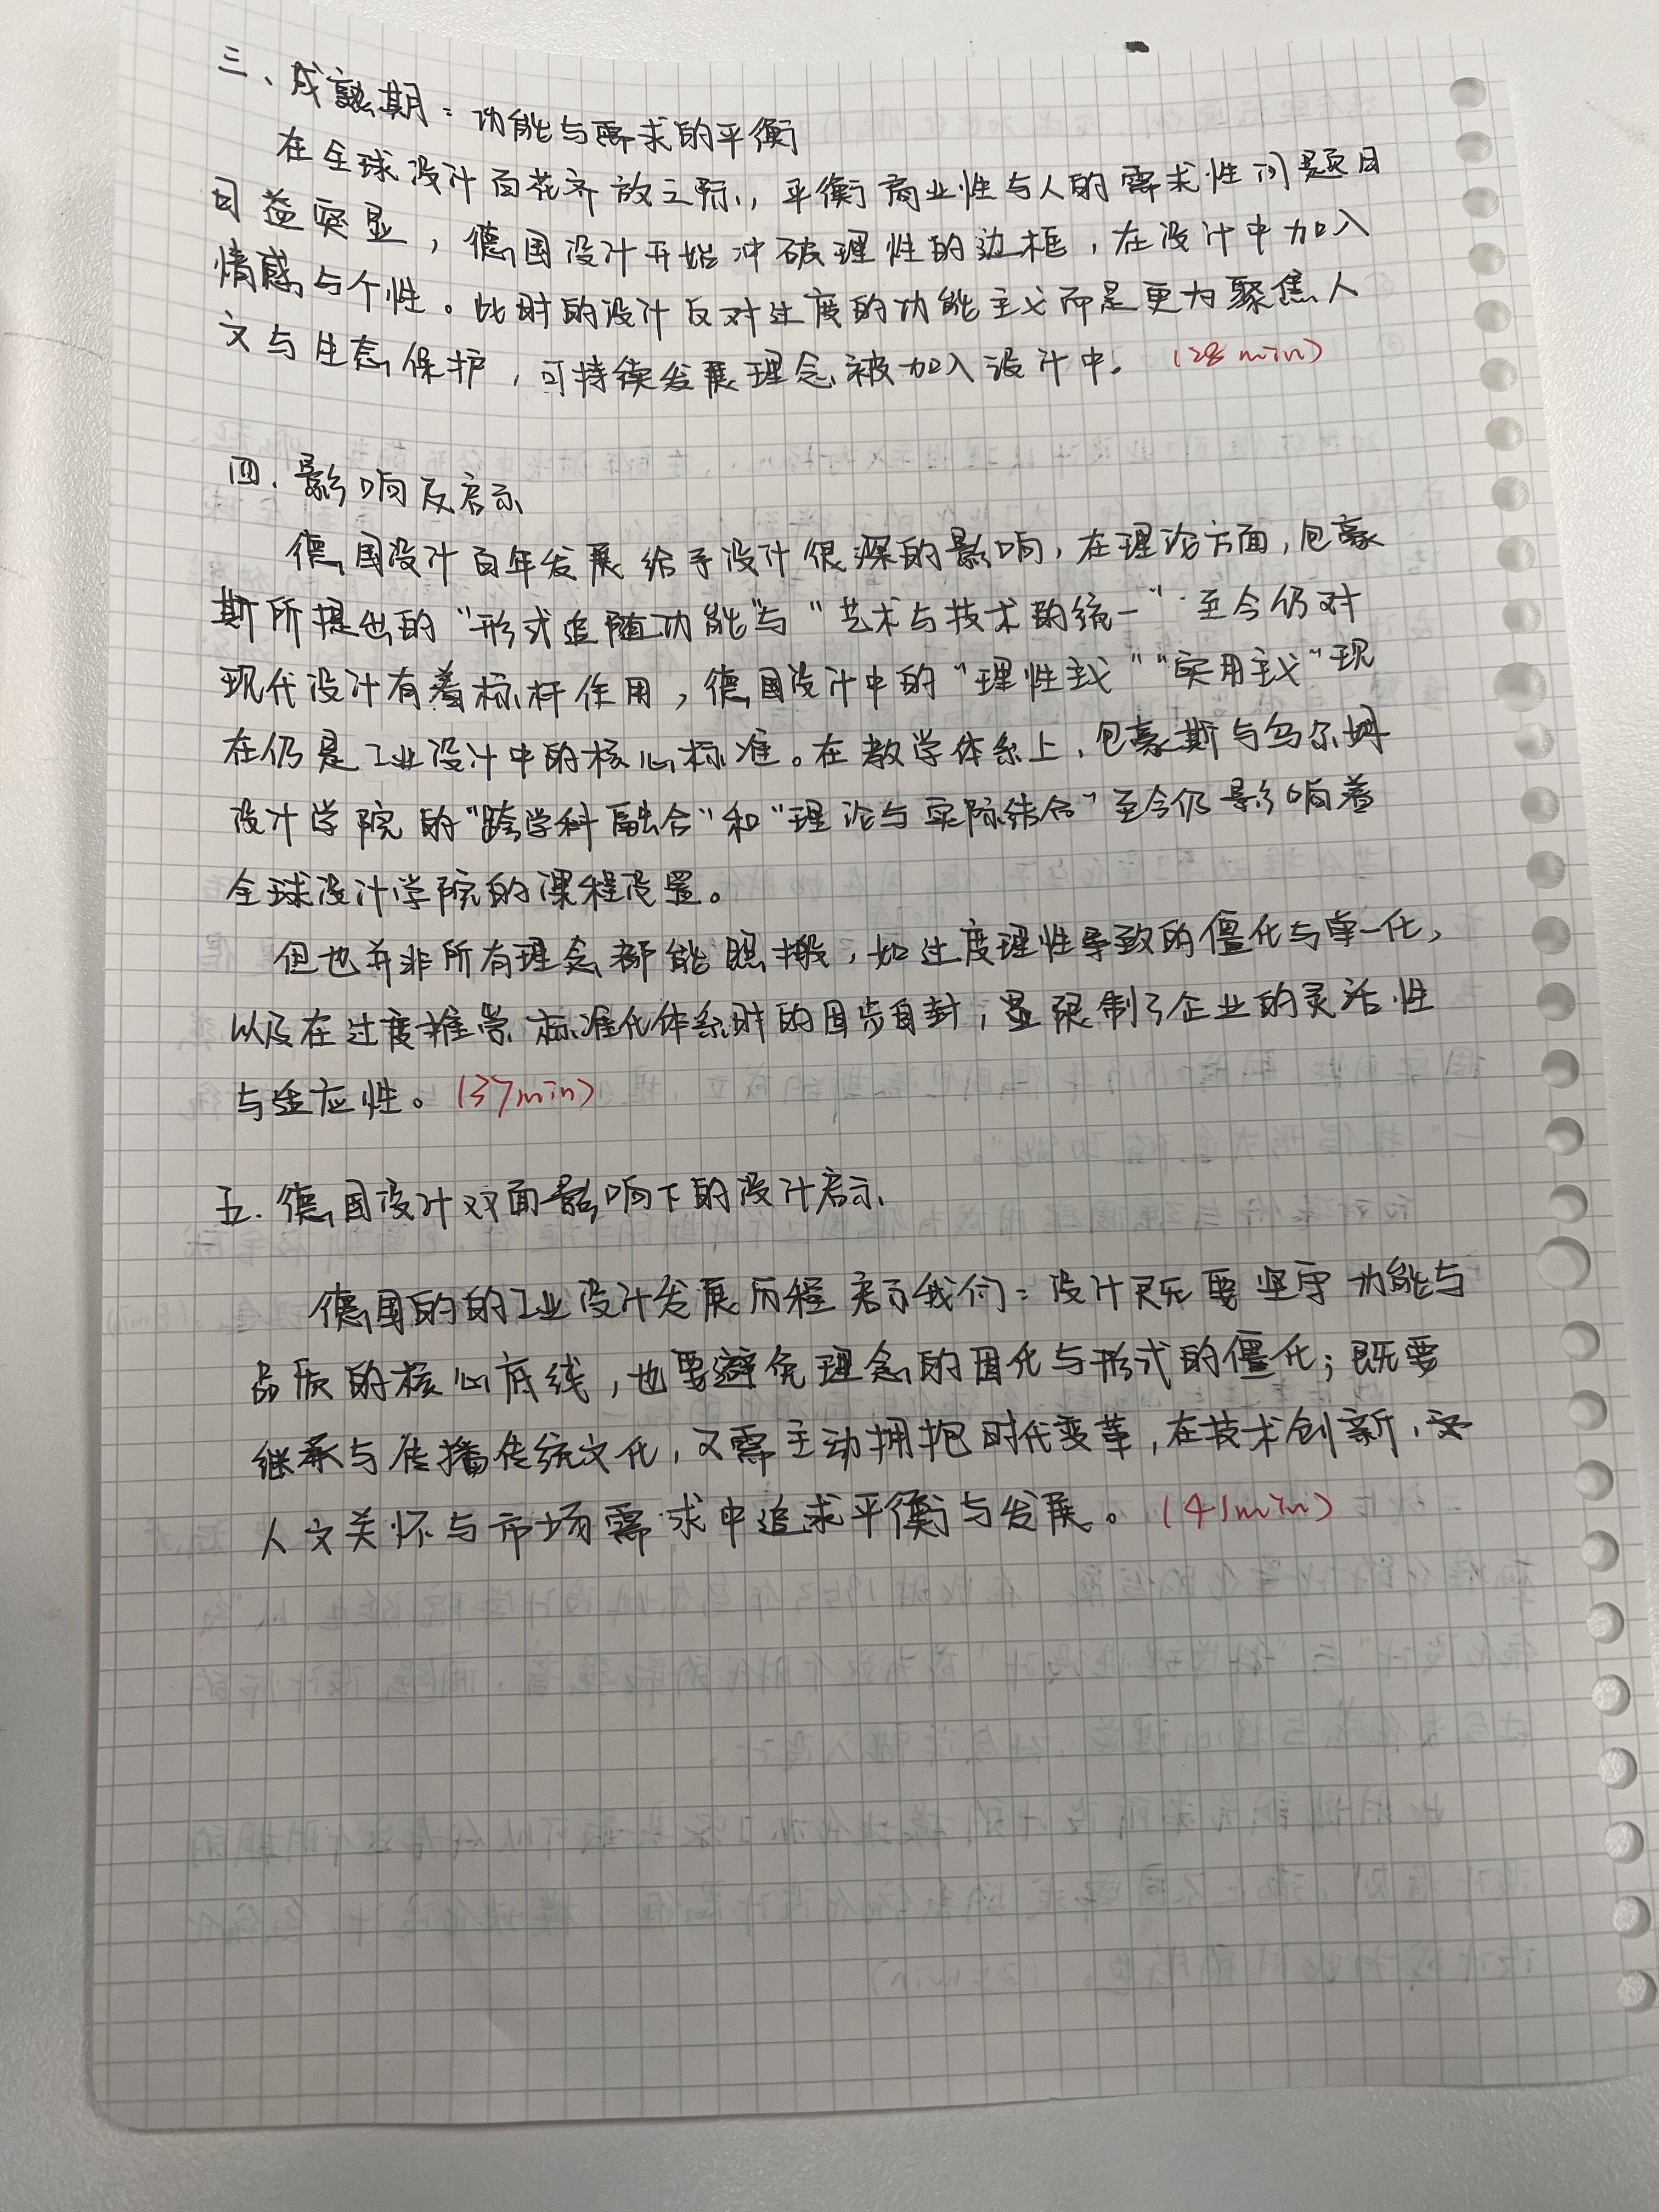 三、成熟期：功能与需求的平衡
在全球设计百花齐放之际，平衡商业性与人的需求性问题日
日益突显，德国设计开始冲破理性的边框，在设计中加入
情感与个性。此时的设计反对过度的功能主义而是更为聚焦人
文与生态保护，可持续发展理念被加入设计中。（28min）
四．影响及启示
德国设计百年发展给予设计很深的影响，在理论方面，包豪
斯所提出的“形式追随功能”与“艺术与技术的统一”至今仍对
现代设计有着标杆作用，德国设计中的“理性主义”“实用主义”现
在仍是工业设计中的核心标准。在教学体系上，包豪斯与乌尔姆
设计学院的“跨学科融合”和“理论与实际结合”至今仍影响着
全球设计学院的课程设置。
但也并非所有理念都能照搬，如过度理性导致的僵化与单一化，
以及在过度推崇标准化体系时的固步自封，限制了企业的灵活性
与适应性。（37min）
五．德国设计双面影响下的设计启示
德国的的工业设计发展历程启示我们：设计既要坚守功能与
品质的核心底线，也要避免理念的固化与形式的僵化；既要
继承与传播传统文化，又需主动拥抱时代变革，在技术创新，
人文关怀与市场需求中追求平衡与发展。（41min）